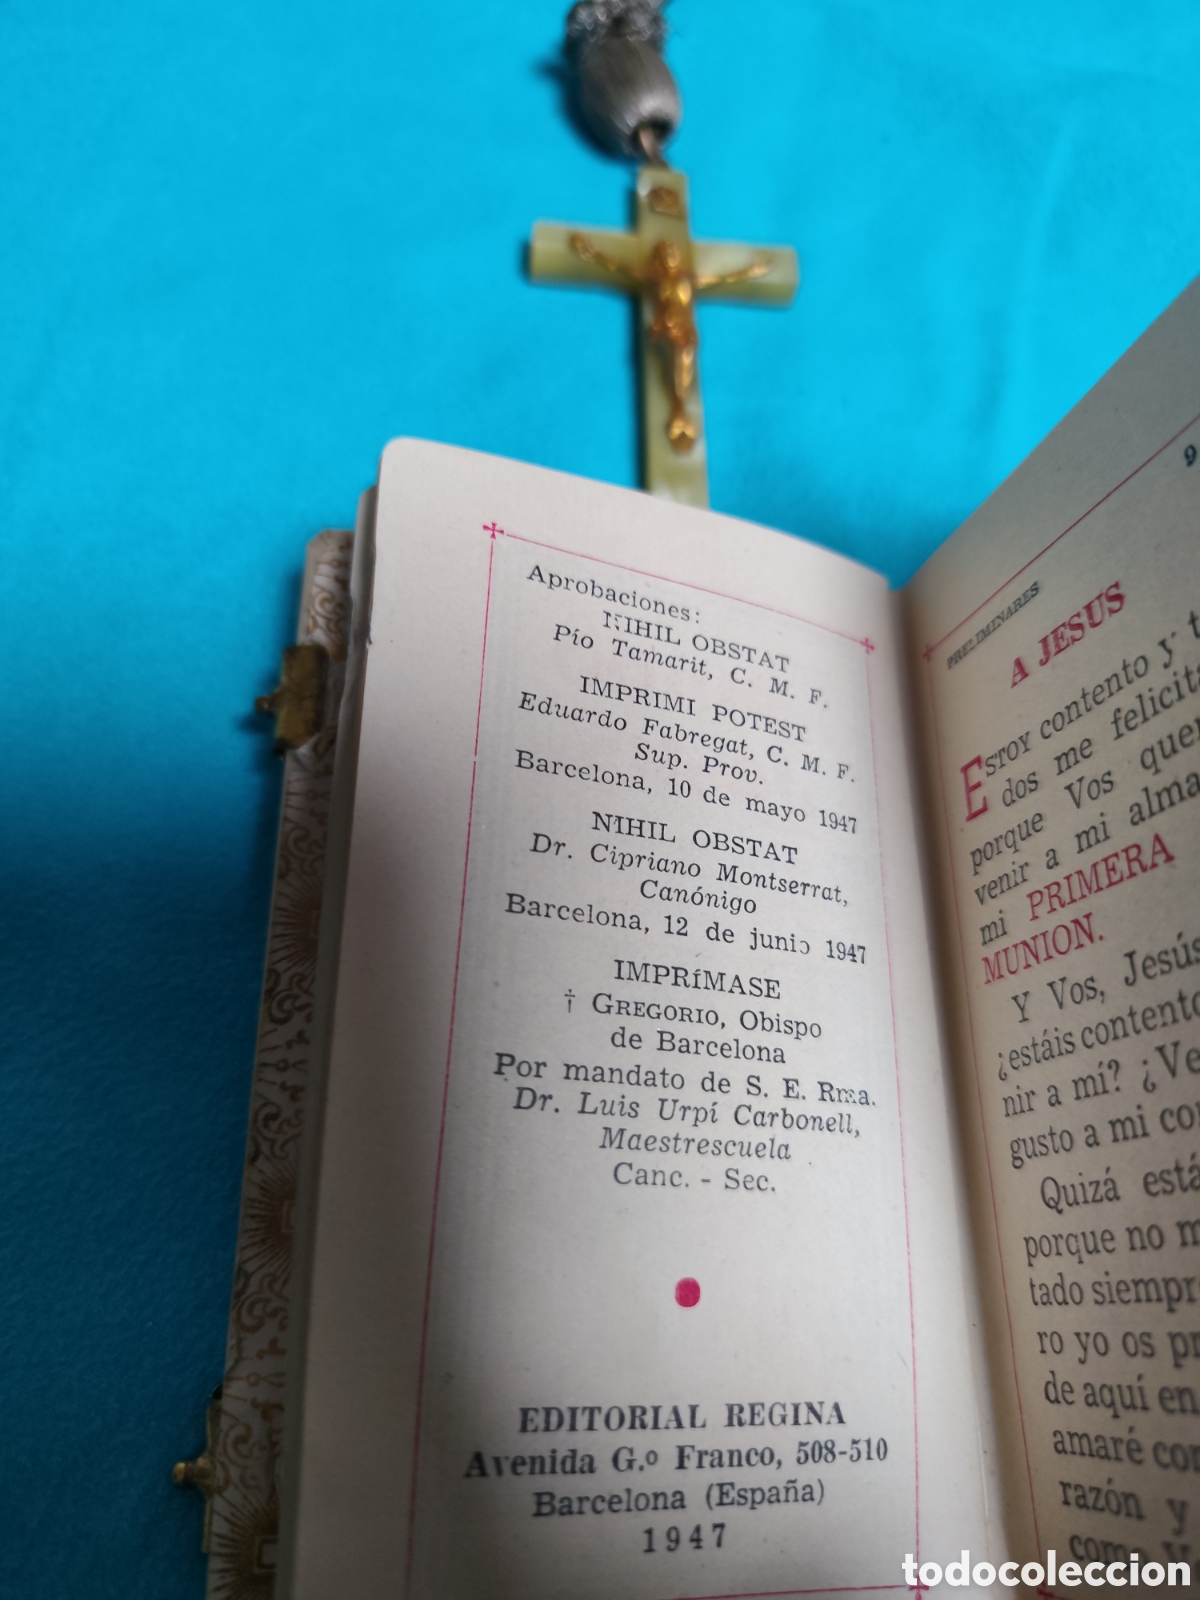 Aprobaciones:
NIHIL OBSTAT
Pío Tamarit, C. M. F.
IMPRIMI POTEST
Eduardo Fabregat, C. M. F.
Sup. Prov.
Barcelona, 10 de mayo 1947
NIHIL OBSTAT
Dr. Cipriano Montserrat,
Canónigo
Barcelona, 12 de junio 1947
IMPRíMASE
† GREGORIO, Obispo
de Barcelona
Por mandato de S. E. Rma.
Dr. Luis Urpí Carbonell,
Maestrescuela
Canc. - Sec.
EDITORIAL REGINA
Avenida G.º Franco, 508-510
Barcelona (España)
1947
PRELIMINARES 9
A JESUS
ESTOY contento y t
dos me felicita
porque Vos quer
venir a mi alma
mi PRIMERA
MUNION.
Y Vos, Jesús
¿estáis contento
nir a mí? ¿Ve
gusto a mi cor
Quizá está
porque no m
tado siempr
ro yo os pr
de aquí en
amaré cor
razón y
como V
todocoleccion